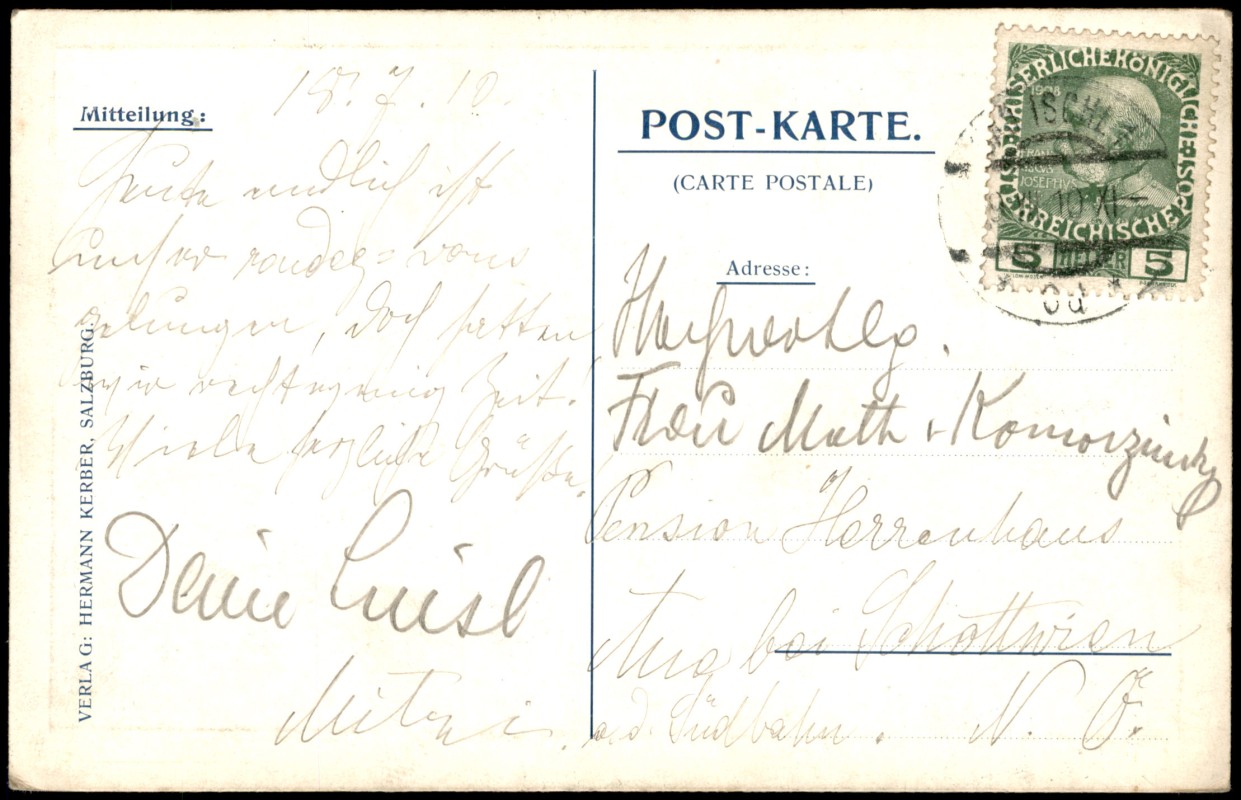 18.7.10.
Mitteilung:
Heute endlich ist
unser rendez-vous
gelungen, doch hatten
wir recht wenig Zeit.
Viele herzliche Grüße,
Deine Luisl
Mitzi.
VERLAG: HERMANN KERBER, SALZBURG.
POST-KARTE.
(CARTE POSTALE)
Adresse:
Hochwohlg.
Frau Math. Komorzinsky
Pension Herrenhaus
Aue bei Schottwien
a.d. Südbahn. N. Ö.
KAISERLICHEKÖNIGLICHE
ÖSTERREICHISCHE POST
1908
FRANCISCUS
JOSEPHUS
5 HELLER 5
BAD ISCHL
10 XI
* 6d *